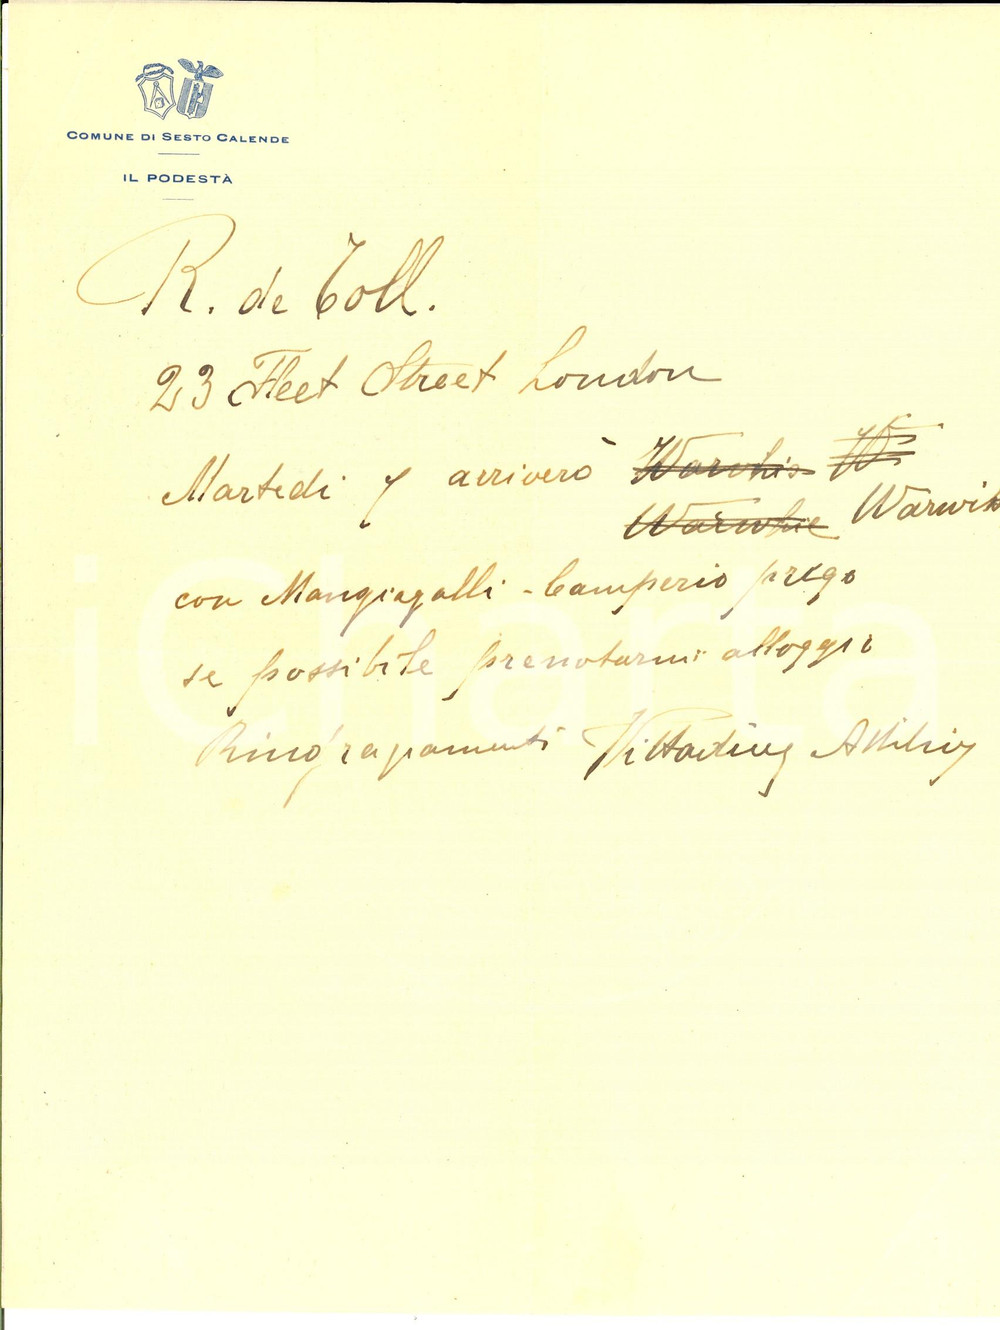 COMUNE DI SESTO CALENDE
IL PODESTÀ
R. de Toll.
23 Fleet Street London
Martedi 7 arriverò Warwhis W
Warwhie Warwik
con Mangiagalli - Camperio prego
se possibile prenotarmi alloggio
Ringraziamenti Vittadini Attilio
iCharta